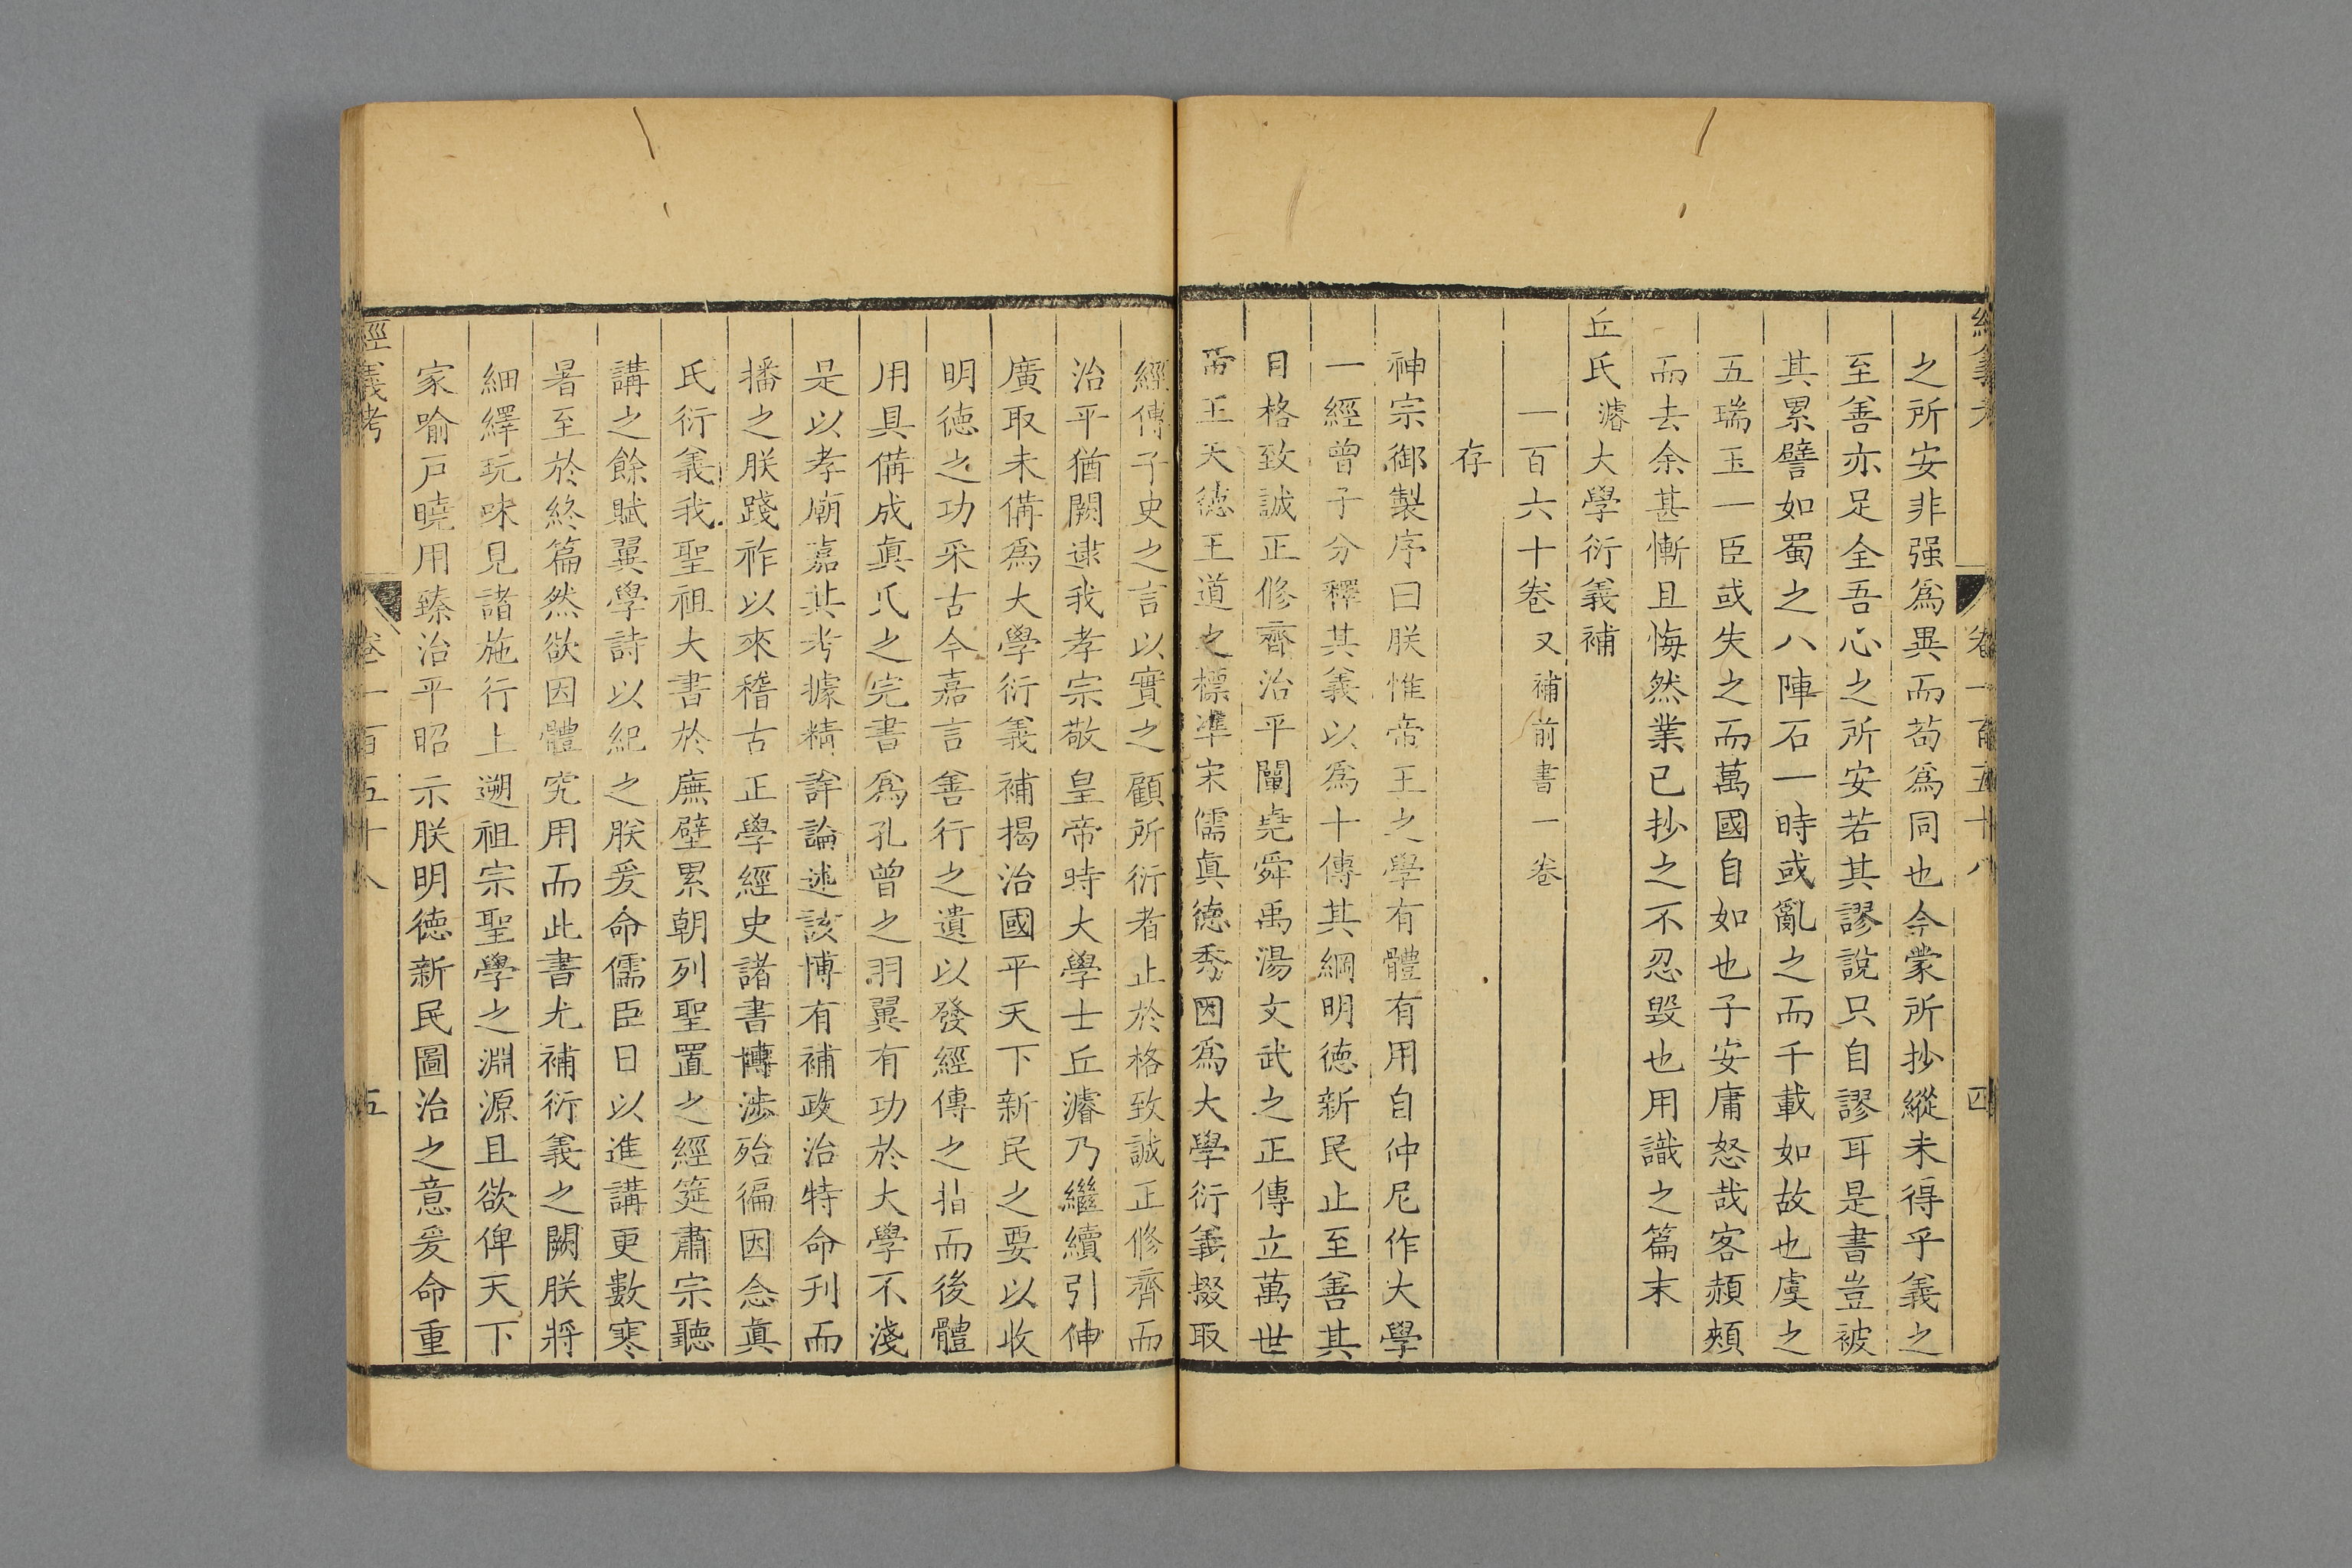 經義考 卷一百五十八 四
之所安非强爲異而苟爲同也今蒙所抄縱未得乎義之
至善亦足全吾心之所安若其謬說只自謬耳是書豈被
其累譬如蜀之八陣石一時或亂之而千載如故也虞之
五瑞玉一臣或失之而萬國自如也子安庸怒哉客頳頰
而去余甚慚且悔然業已抄之不忍毀也用識之篇末
丘氏濬大學衍義補
一百六十卷又補前書一卷
存
神宗御製序曰朕惟帝王之學有體有用自仲尼作大學
一經曾子分釋其義以爲十傳其綱明德新民止至善其
目格致誠正修齊治平闡堯舜禹湯文武之正傳立萬世
帝王天德王道之標準宋儒眞德秀因爲大學衍義掇取
經傳子史之言以實之顧所衍者止於格致誠正修齊而
治平猶闕逮我孝宗敬皇帝時大學士丘濬乃繼續引伸
廣取未備爲大學衍義補揭治國平天下新民之要以收
明德之功采古今嘉言善行之遺以發經傳之指而後體
用具備成眞氏之完書爲孔曾之羽翼有功於大學不淺
是以孝廟嘉其考據精詳論述該博有補政治特命刊而
播之朕踐祚以來稽古正學經史諸書博涉殆徧因念眞
氏衍義我聖祖大書於廡壁累朝列聖置之經筵肅宗聽
講之餘賦翼學詩以紀之朕爰命儒臣日以進講更數寒
暑至於終篇然欲因體究用而此書尤補衍義之闕朕將
細繹玩味見諸施行上遡祖宗聖學之淵源且欲俾天下
家喻戶曉用臻治平昭示朕明德新民圖治之意爰命重
經義考 卷一百五十八 五